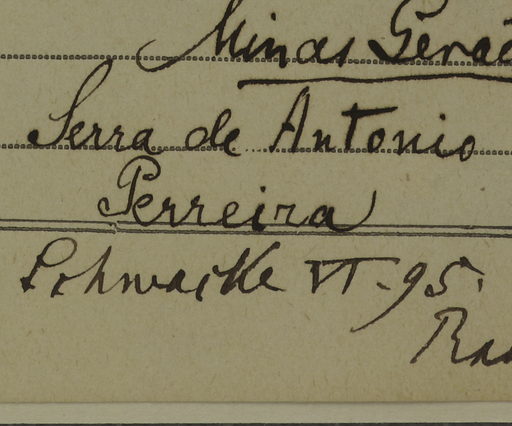 Minas Gerae
Serra de Antonio
Perreira
Schwacke VI. 95.